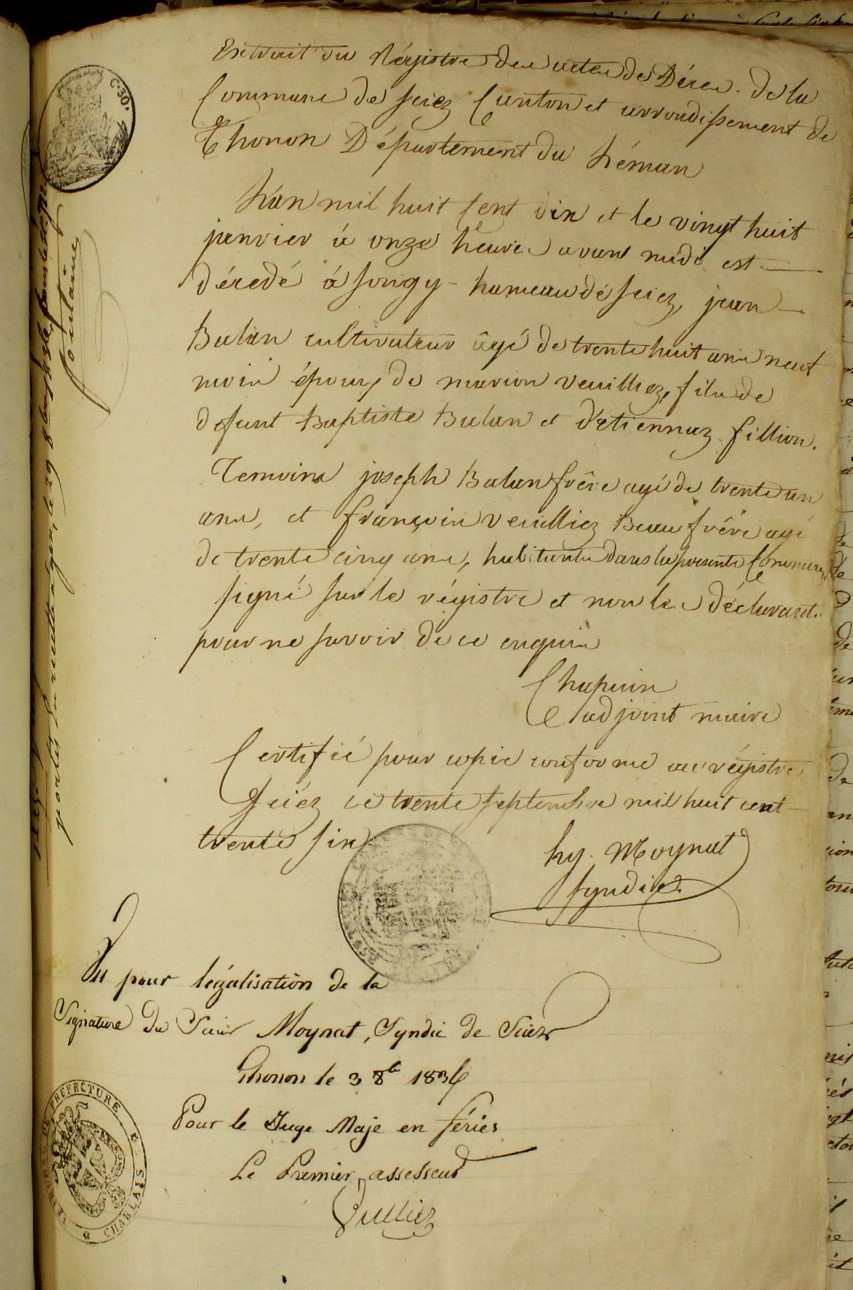 Extrait du Régistre des actes de Décès de la
Commune de Sciez Canton et arrondissement de
Thonon Département du Léman
L'an mil huit cent dix et le vingt huit
janvier à onze heures avant midi est
décédé à Songy hameau de Sciez, jean
Balan cultivateur âgé de trente huit ans neuf
mois époux de marion veuilliez, fils de
défunt Baptiste Balan et d'etiennaz fillion.
Temoins joseph Balan frère agé de trente un
ans, et françois veuilliez Beaufrère agé
de trente cinq ans, habitants dans la presente Commune
signé sur le régistre et non les déclarants
pour ne savoir de ce enquis
Chapuis
adjoint maire
Certifié pour copie conforme au régistre
Sciez ce trente septembre mil huit cent
trente six
hy. Moynat
syndic
Vu pour légalisation de la
Signature du Sieur Moynat, Syndic de Sciez
Thonon le 3 8e 1836
Pour le Juge Maje en féries
Le Premier assesseur
Vulliez
C. 30.
PREFECTURE
CHABLAIS